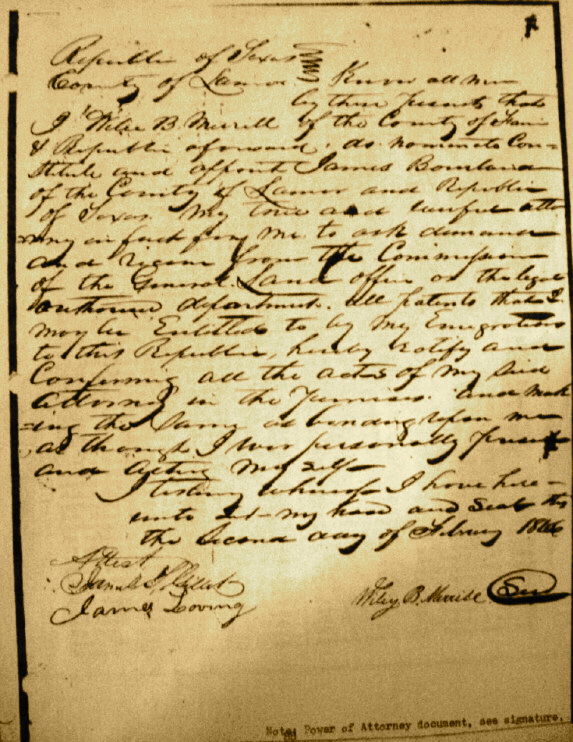 Republic of Texas
County of Lamar Know all men
by these presents that
I Wiley B. Merrill of the County of Fanin
& Republic aforesaid, do nominate Con-
stitute and appoint James Bourland
of the County of Lamar and Republic
of Texas My true and lawful att-
orny in fact for me to ask demand
and receive from the Commissioner
of the General Land office or the legal
authorised department. all patents that I
may be Entitled to by my Emigration
to this Republic, hereby ratify and
Confirming all the acts of my said
Attorney in the premises. and mak-
ing the same as binding upon me
as though I was personally present
and acting my self
I testimony whereof I have here-
unto set my hand and seal this
the second day of Febuary
Attest
James Loving
Wiley B. Merrill Seal
Note: Power of Attorney document, see signature.